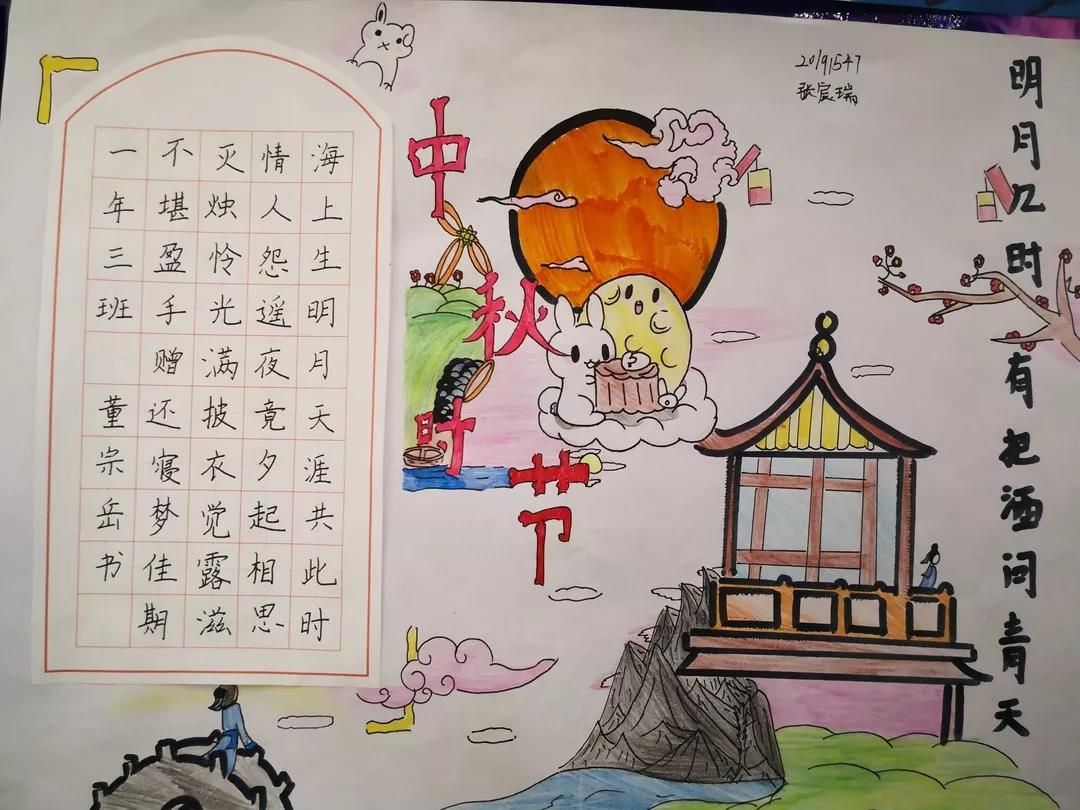 明月几时有把酒问青天
20191547
张宸瑞
中秋时节
海上生明月天涯共此时
情人怨遥夜竟夕起相思
灭烛怜光满披衣觉露滋
不堪盈手赠还寝梦佳期
一年三班 董宗岳书